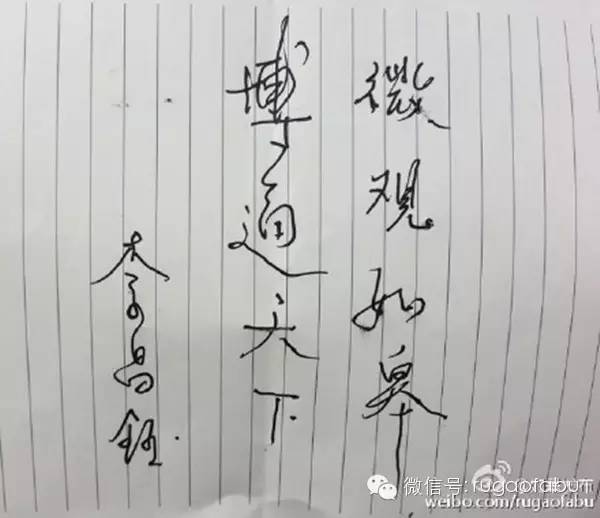 微观如皋
博通天下
李昌钰
微信号: rugaofabu
weibo.com/rugaofabu